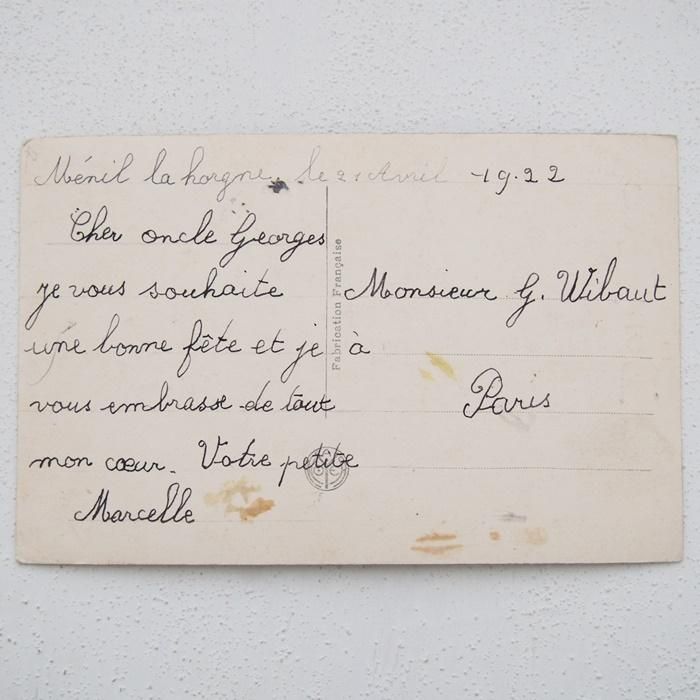 Ménil la horgne le 21 Avril 19.22
Cher oncle Georges
je vous souhaite
une bonne fête et je
vous embrasse de tout
mon cœur. Votre petite
Marcelle
Fabrication Française
Monsieur G. Wibaut
à
Paris